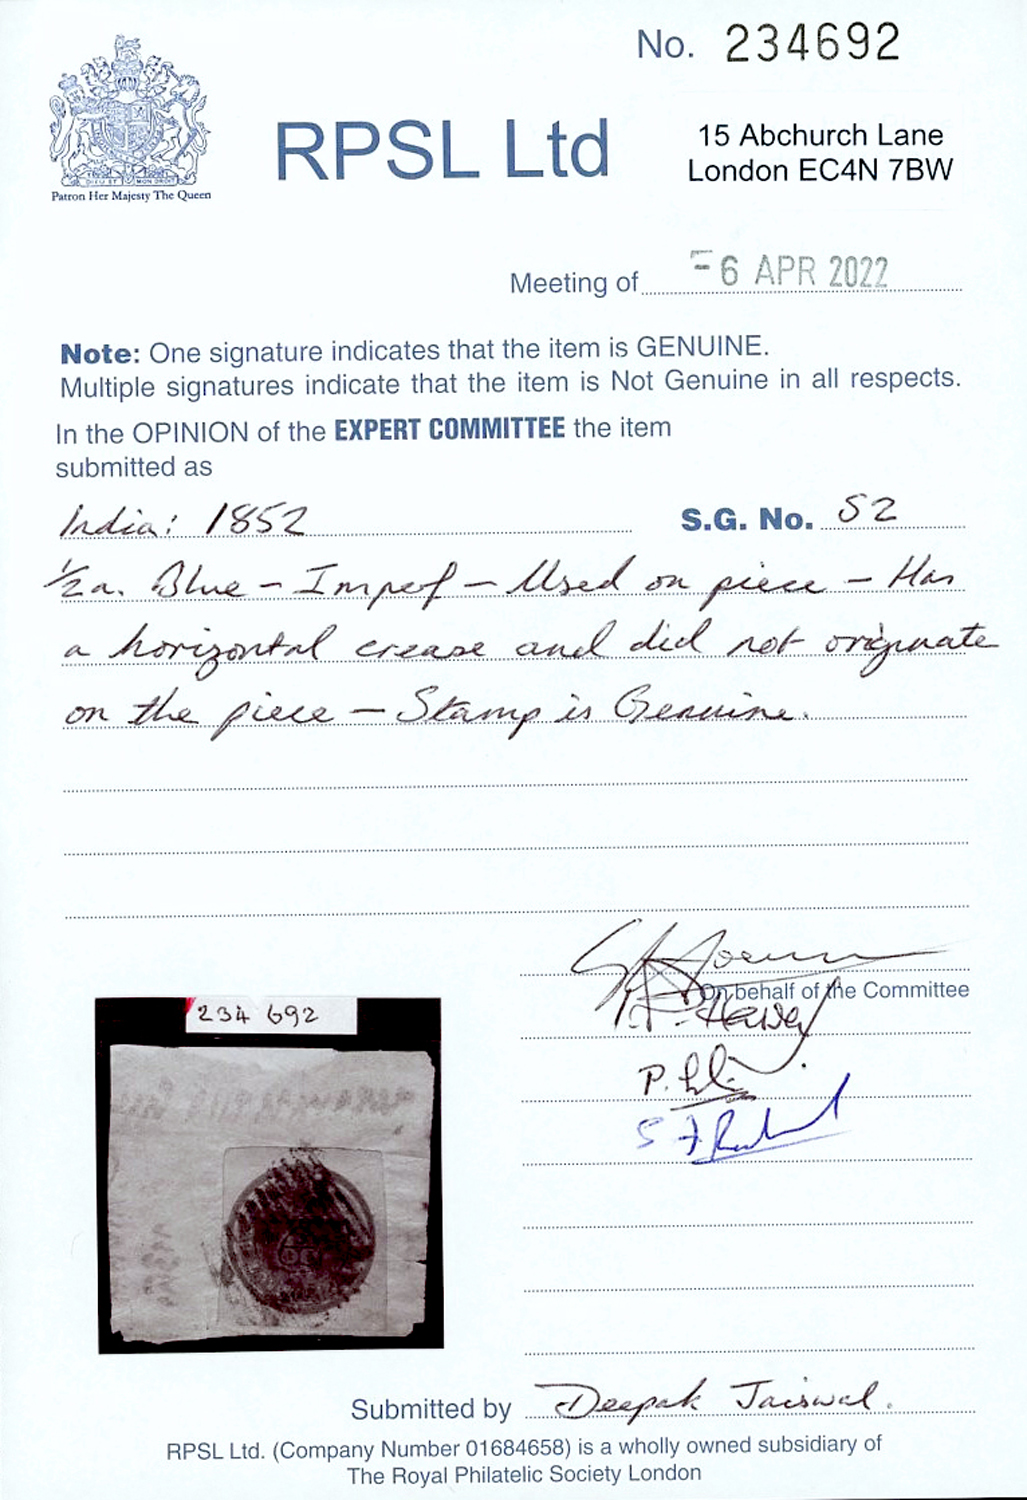 No. 234692
DIEU ET MON DROIT
Patron Her Majesty The Queen
RPSL Ltd
15 Abchurch Lane
London EC4N 7BW
Meeting of - 6 APR 2022
Note: One signature indicates that the item is GENUINE.
Multiple signatures indicate that the item is Not Genuine in all respects.
In the OPINION of the EXPERT COMMITTEE the item
submitted as
India: 1852 S.G. No. S2
½a. Blue - Imperf - Used on piece - Has
a horizontal crease and did not originate
on the piece - Stamp is Genuine.
On behalf of the Committee
234 692
Submitted by Deepak Jaiswal.
RPSL Ltd. (Company Number 01684658) is a wholly owned subsidiary of
The Royal Philatelic Society London